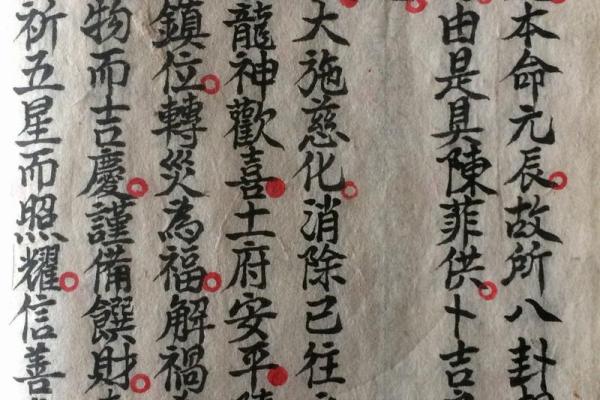 本命元辰故所八卦
由是具陳菲供卜吉
大施慈化消除已往
龍神歡喜土府安平
鎮位轉災為福解禍
物而吉慶謹備饌財
祈五星而照耀信善